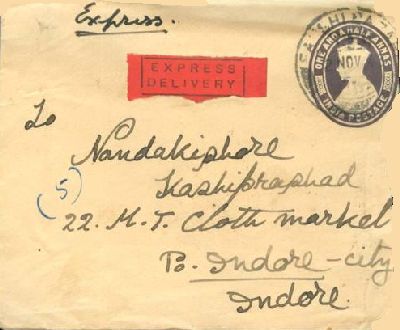 Express.
EXPRESS
DELIVERY
ONE AND A HALF ANNAS
INDIA POSTAGE
NOV
To
Nandakishore
Kashipraphad
(5)
22. M. T. Cloth market
Po. Indore-city
Indore.